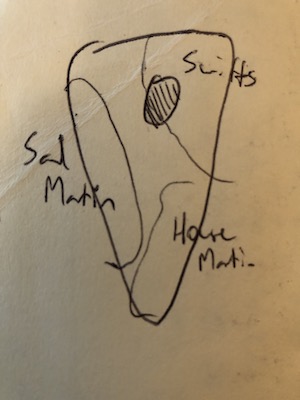 Swifts
Sand
Martin
House
Martin